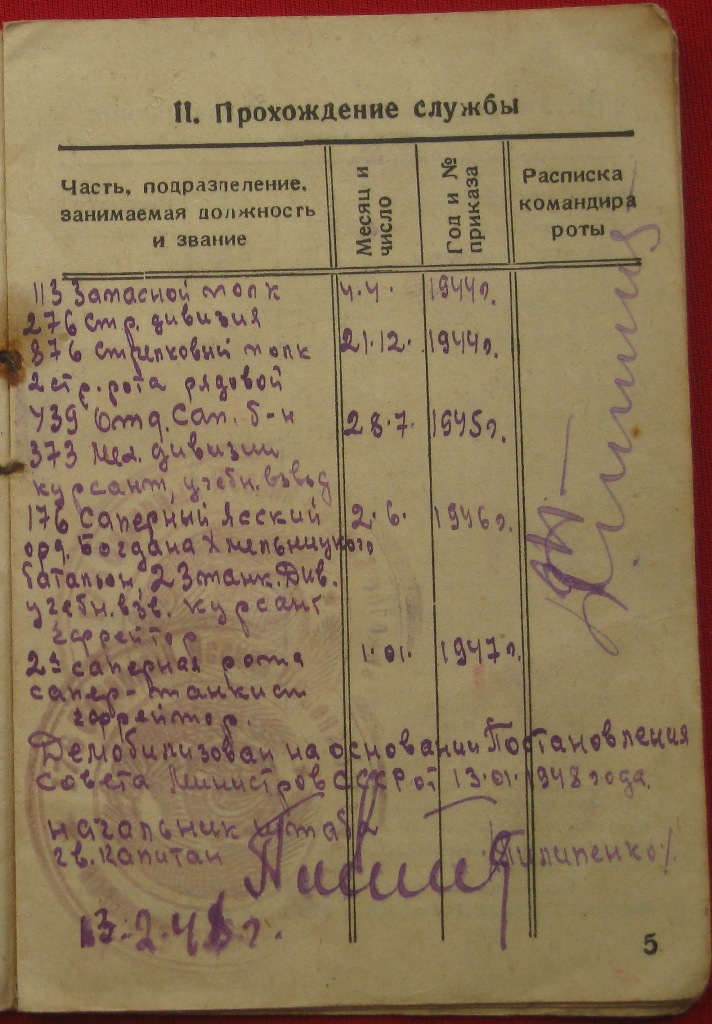 II. Прохождение службы
Часть, подразпеление, занимаемая должность и звание
Месяц и число
Год и № приказа
Расписка командира роты
113 Запасной полк 4.4. 1944г.
276 стр. дивизия
876 стрелковый полк 21.12. 1944г.
2 стр. рота рядовой
439 Отд. Сап. б-н 28.7. 1945г.
373 мех. дивизии
курсант, учебн. взвод
176 Саперный Ясский 2.6. 1946г.
орд. Богдана Хмельницкого
батальон, 23 танк. Див.
учебн. взв. курсант
ефрейтор
2я саперная рота 1.01. 1947г.
сапер-танкист
ефрейтор.
Демобилизован на основании Постановления
Совета Министров СССР от 13.01.1948 года.
начальник штаба
гв. капитан Пилипенко/.
13.2.48г.
5